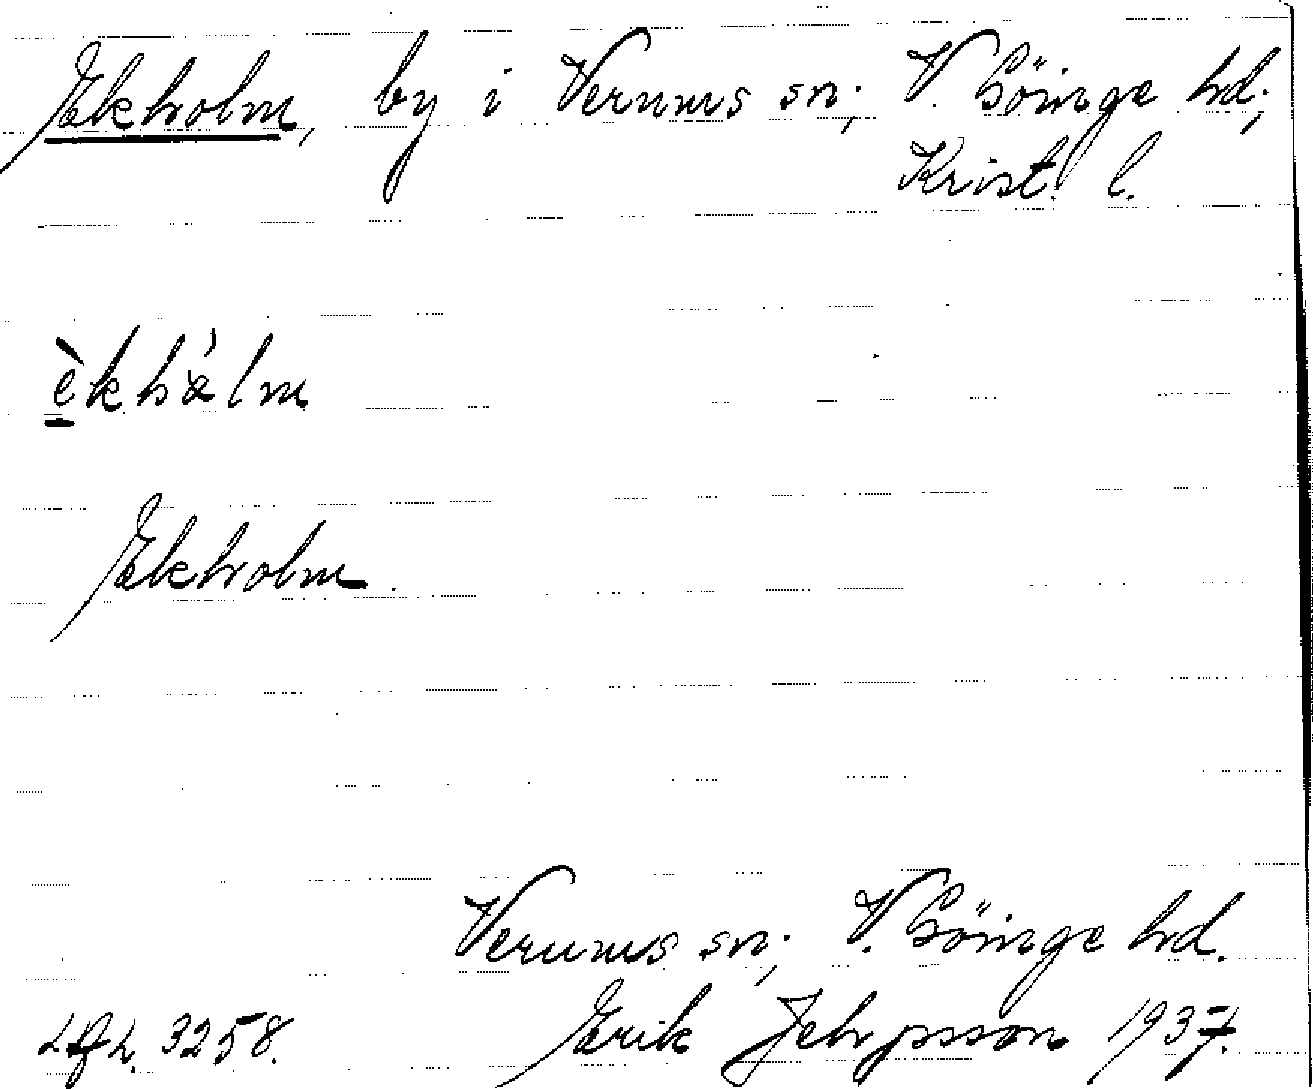 Ekholm, by i Verums sn; V. Göinge hd;
Krist. l.
Ekholm.
Verums sn; V. Göinge hd.
3258. Erik 1937.